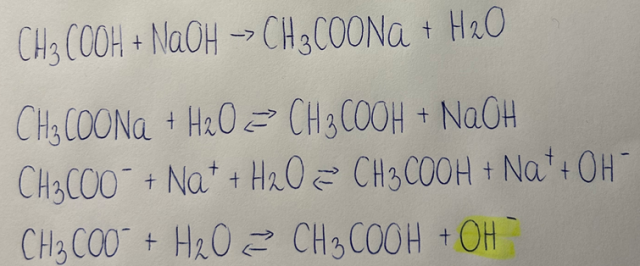 CH₃COOH + NaOH → CH₃COONa + H₂O
CH₃COONa + H₂O ⇌ CH₃COOH + NaOH
CH₃COO⁻ + Na⁺ + H₂O ⇌ CH₃COOH + Na⁺ + OH⁻
CH₃COO⁻ + H₂O ⇌ CH₃COOH + OH⁻